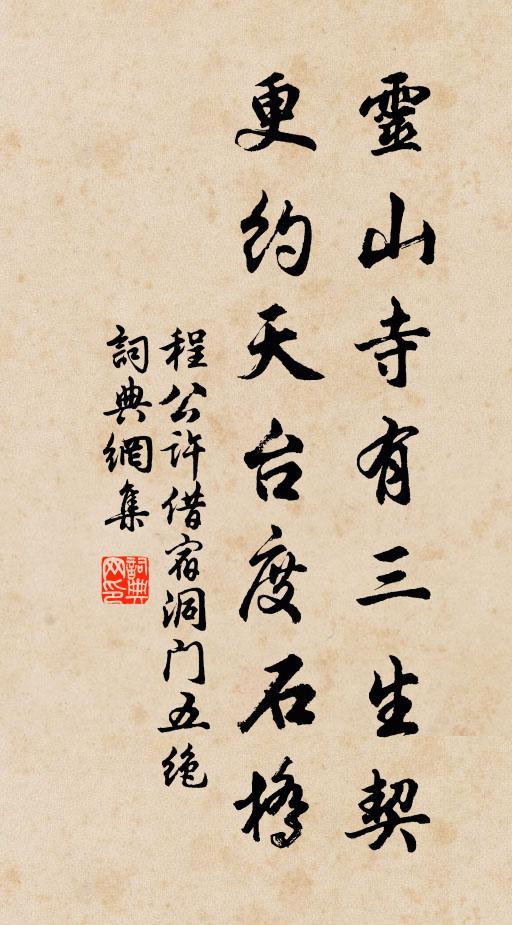 靈山寺有三生契
更約天台度石橋
程公许借宿洞门五绝
詞典網集
詞典网印